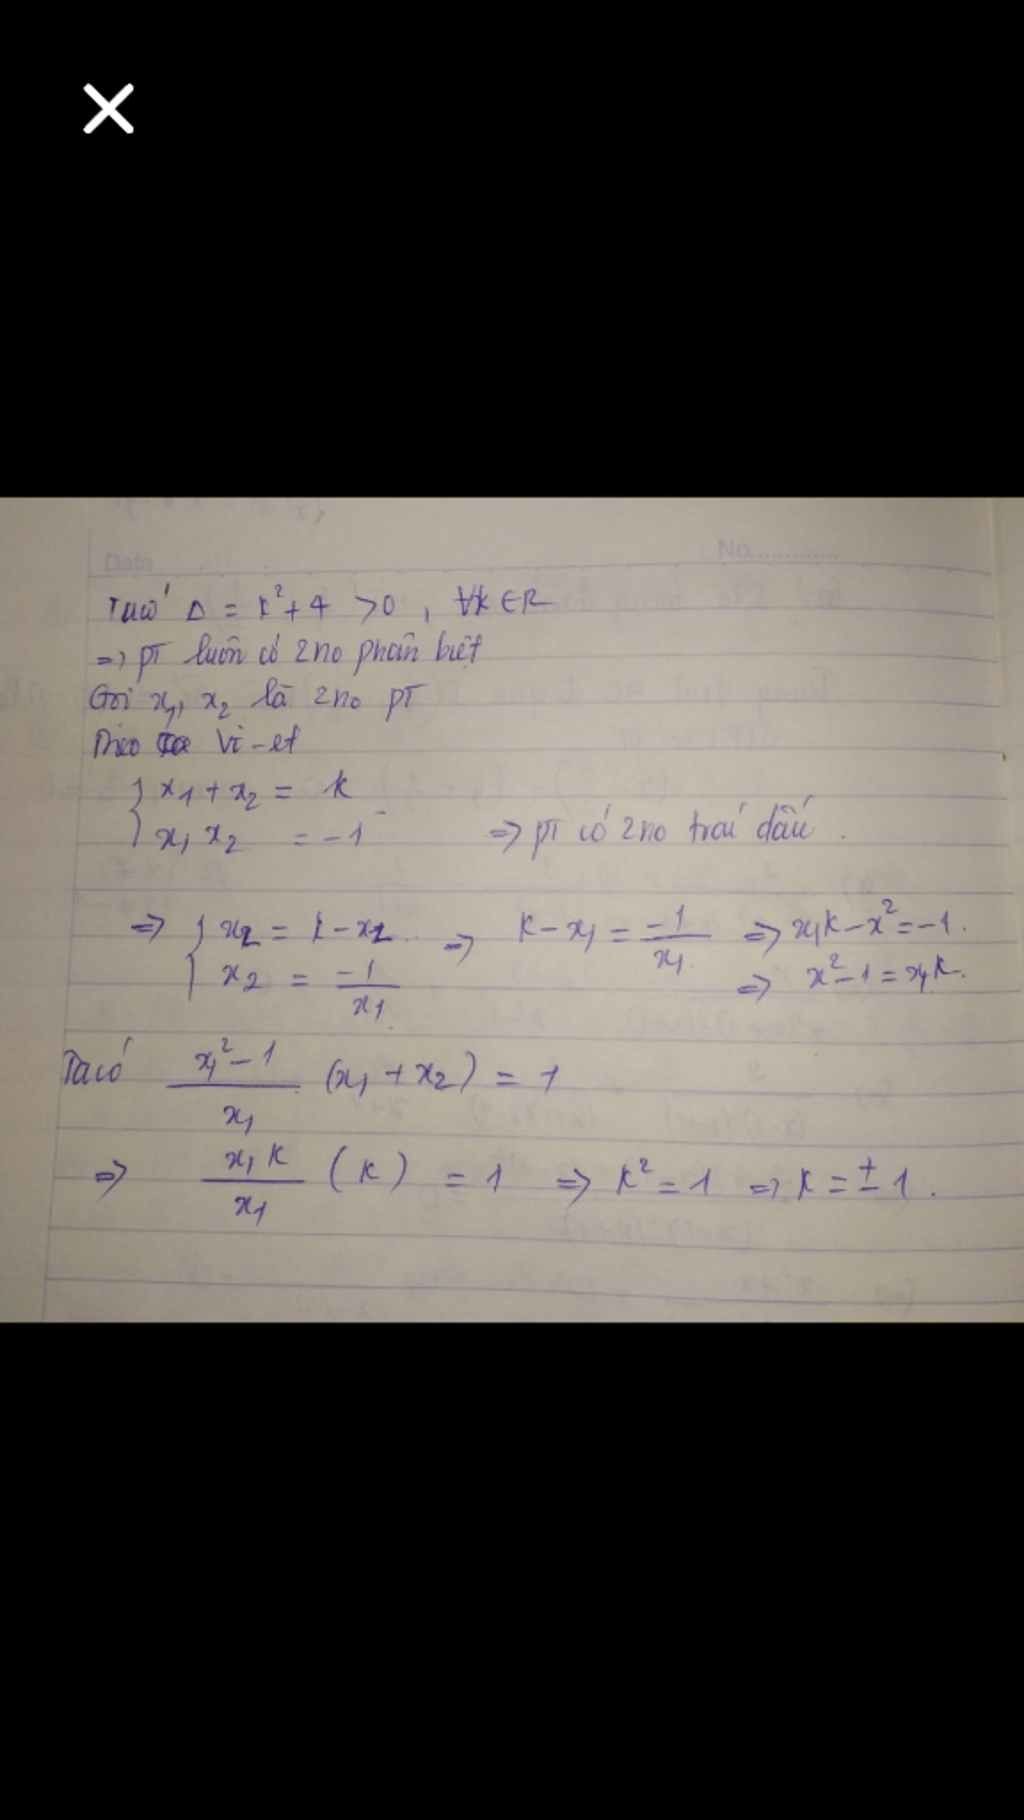 Date No.............
Ta có Δ = k² + 4 > 0 , ∀k ∈ R
=> pT luôn có 2 no phân biệt
Gọi x₁, x₂ là 2 no pT
Theo Vi-et
{ x₁ + x₂ = k
{ x₁ x₂ = -1 => pT có 2 no trái dấu .
=> { x₂ = k - x₂ => k - x₁ = -1/x₁ => x₁k - x² = -1.
{ x₂ = -1/x₁ => x² - 1 = x₁k.
Ta có (x₁² - 1)/x₁ (x₁ + x₂) = 1
=> x₁k/x₁ (k) = 1 => k² = 1 => k = ± 1 .